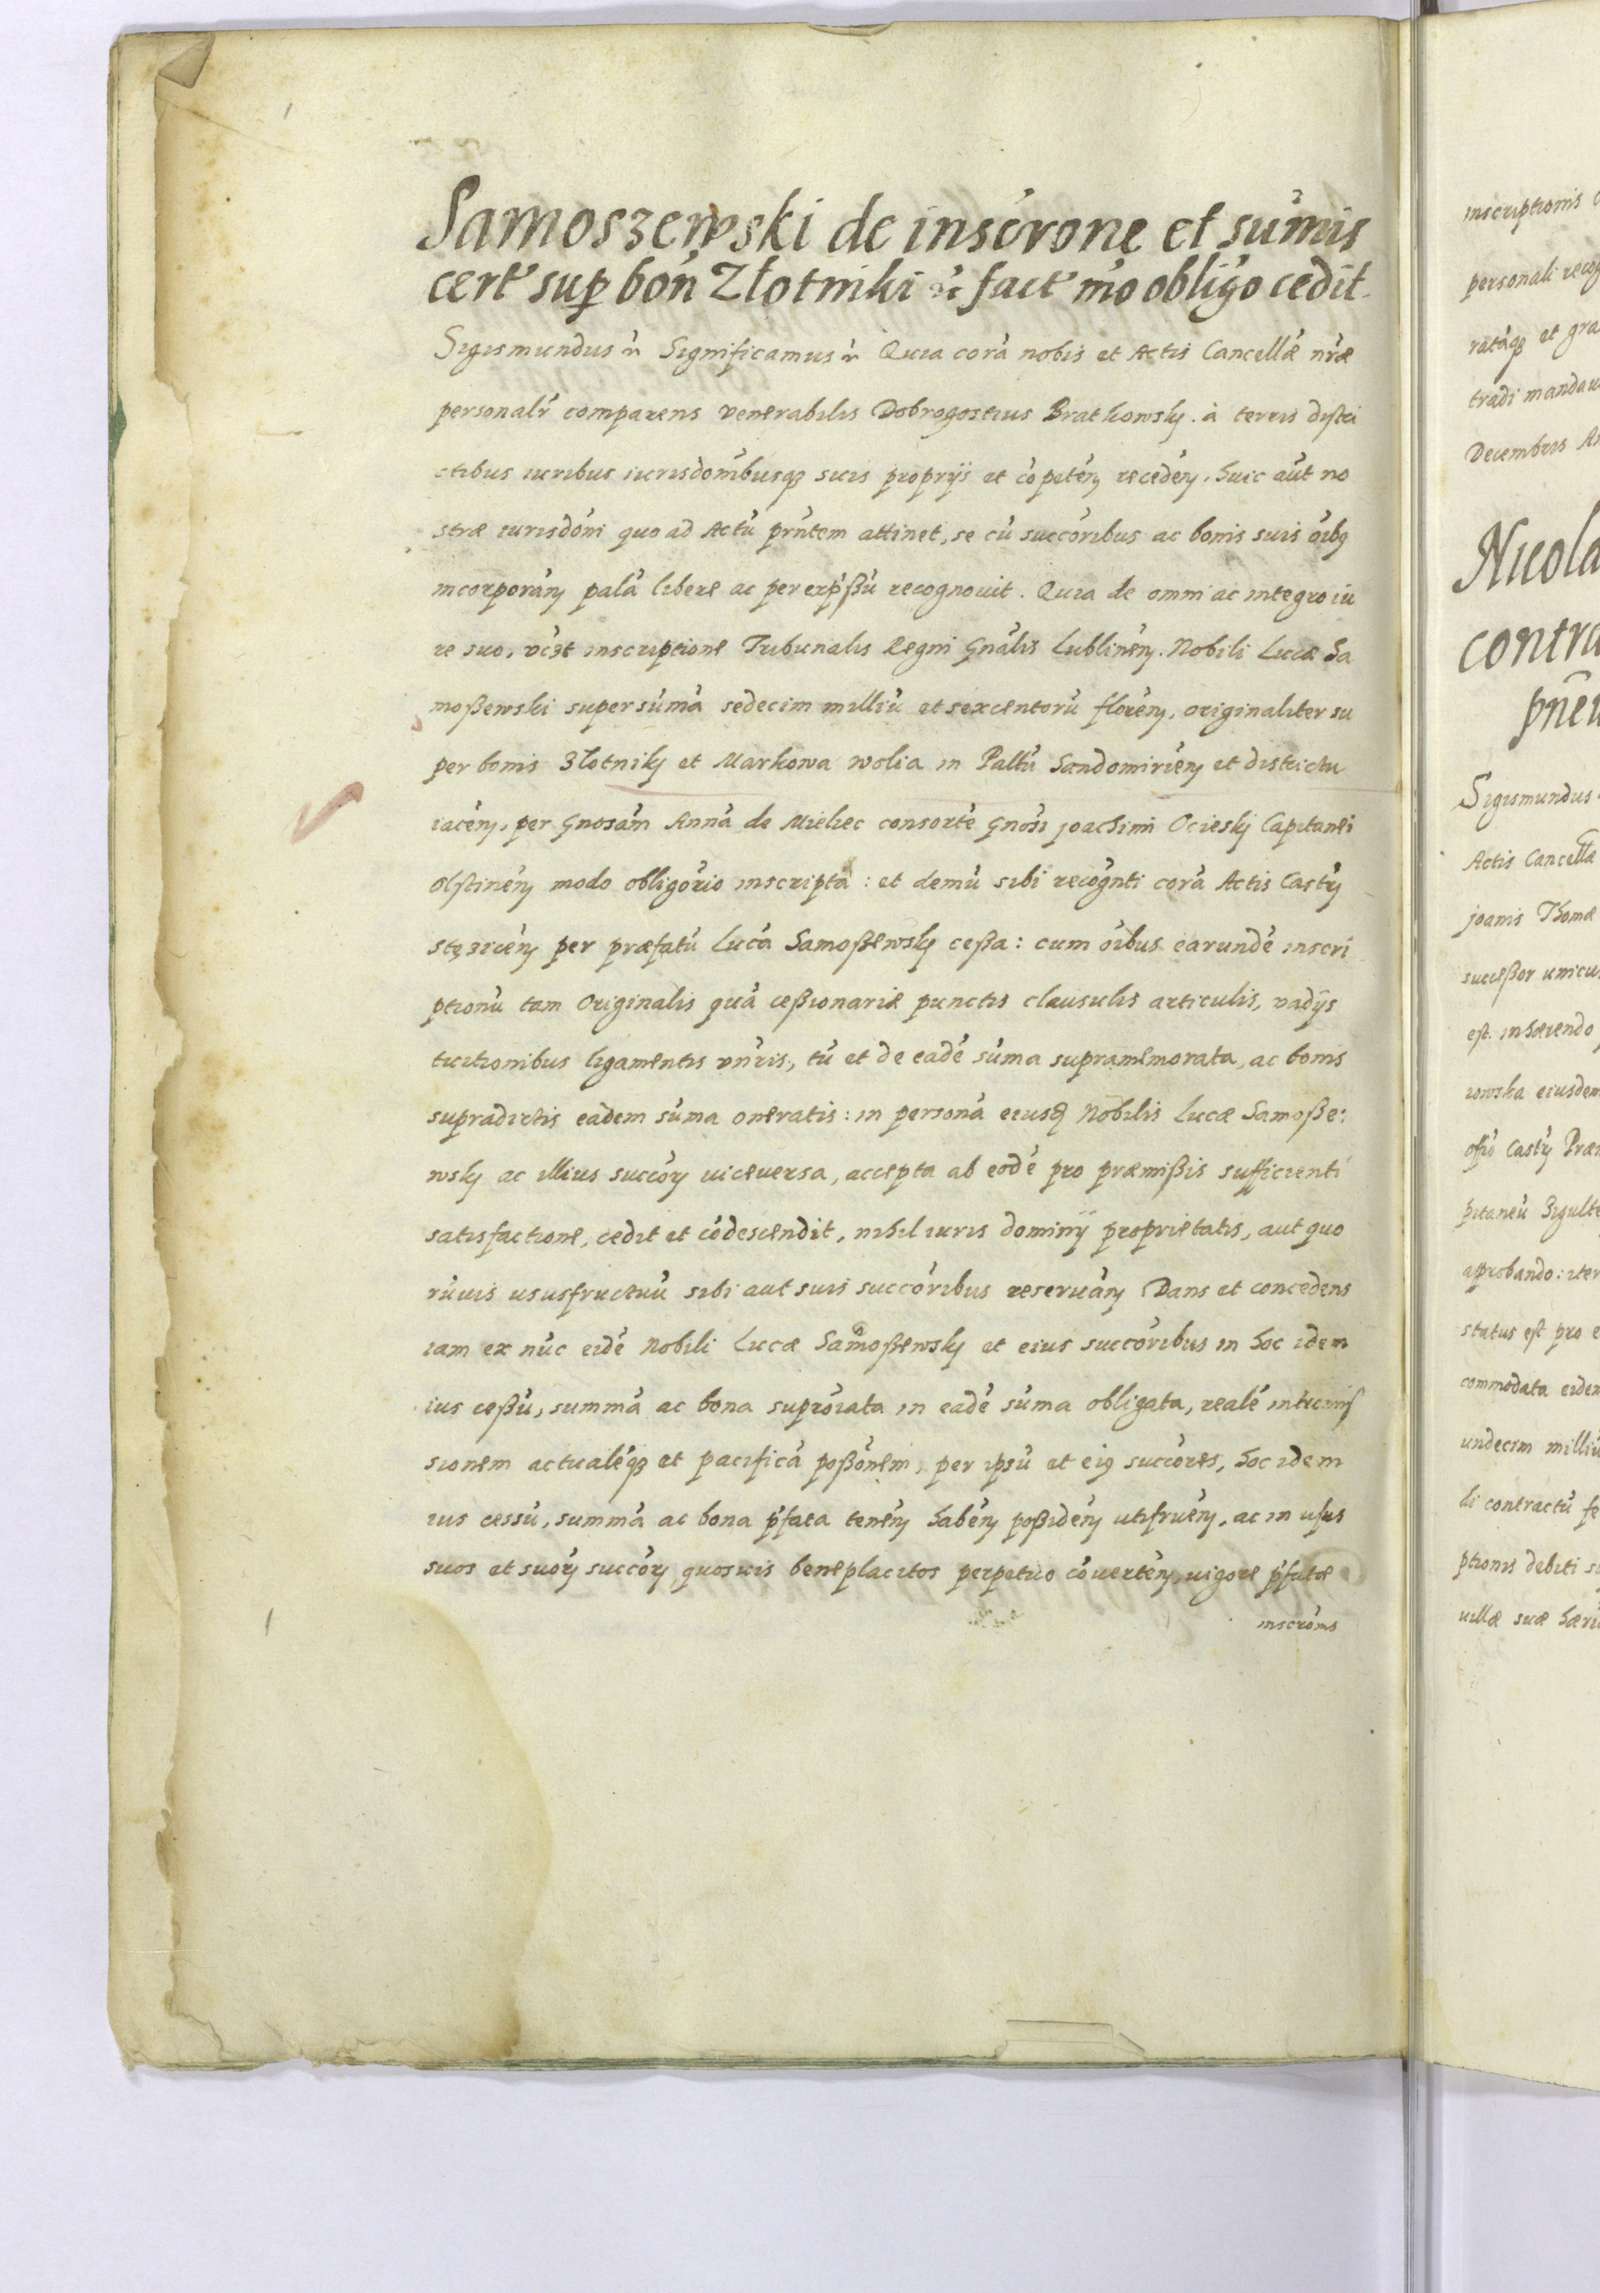 Samoszewski de inscrone et sumis
cert sup bon Złotniki fact mo obligo cedit
Sigismundus Significamus Quia corã nobis et Actis Cancellæ nræ
personalr comparens venerabilis Dobrogostius Bratkowsky. à terris distri
ctibus iuribus iurisdonibusq3 suis proprijs et cõpeten receden, huic aut no
stræ iurisdoni quo ad Actũ prntem attinet, se cũ succoribus ac bonis suis oibq
incorporan palã libere ac per exp̃ßũ recognouit. Quia de omni ac integro iu
re suo, inscriptione Tribunalis Regni Gnalis Lublinen. Nobili Lucæ Sa
moßewski super sũmã sedecim milliũ et sexcentorũ floren, originaliter su
per bonis Złotniky et Markowa wolia in Pallũ Sandomirien et districtu
iacen, per Gnosam Annã de Mielec consorte Gnosi joachimi Ociesky Capitanei
Olstinen modo obligorio inscripta : et demũ sibi recognti corã Actis Castr
stę3icen per præfatũ Lucã Samoßewsky ceßa : cum oibus earundẽ inscri
ptionũ tam Originalis quã ceßionariæ punctis clausulis articulis, vadijs
tuitionibus ligamentis vnris, tũ et de eadẽ sũma supramemorata, ac bonis
supradictis eadem sũma oneratis : in personã eiusd Nobilis Lucæ Samoße:
wsky ac illius succor uiceversa, accepta ab eodẽ pro præmißis sufficienti
satisfactione, cedit et cõdescendit, nihil iuris dominij proprietatis, aut quo
rũuis ususfructuũ sibi aut suis succoribus reseruan Dans et concedens
iam ex nũc eidẽ Nobili Lucæ Samoßewsky et eius succoribus in hoc idem
ius ceßũ, summã ac bona suprõrata in eadẽ sũma obligata, realẽ intromis
sionem actualẽq3 et pacificã poßonem, per ipsũ et eiq succores, hoc idem
ius cessũ, summã ac bona p̃fata tenen haben poßiden utifruen, ac in usus
suos et suor succor quosuis beneplacitos perpetuo cõuerten, uigore p̃fatæ
inscronis
inscriptionis
personali recog
ratãq3 et gra
tradi mandaui
Decembris An
Nicola
contra
Sigismundus
Actis Cancellæ
joanis Thomæ
succeßor unicus
est. inhærendo
iowska eiusdem
offo Castr Præm
pitaneũ
aprobando : iter
status est pro e
commodata eidem
undecim milliũ
li contractũ fe
ptionis debiti
uillæ suæ